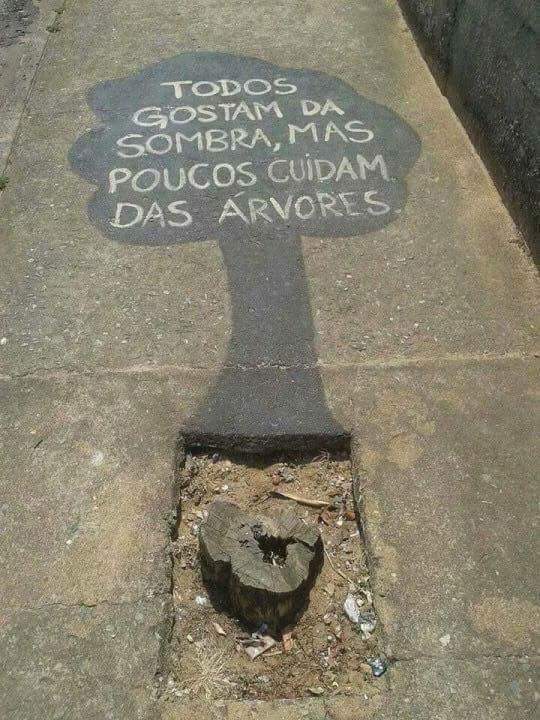 TODOS
GOSTAM DA
SOMBRA, MAS
POUCOS CUIDAM
DAS ÁRVORES.